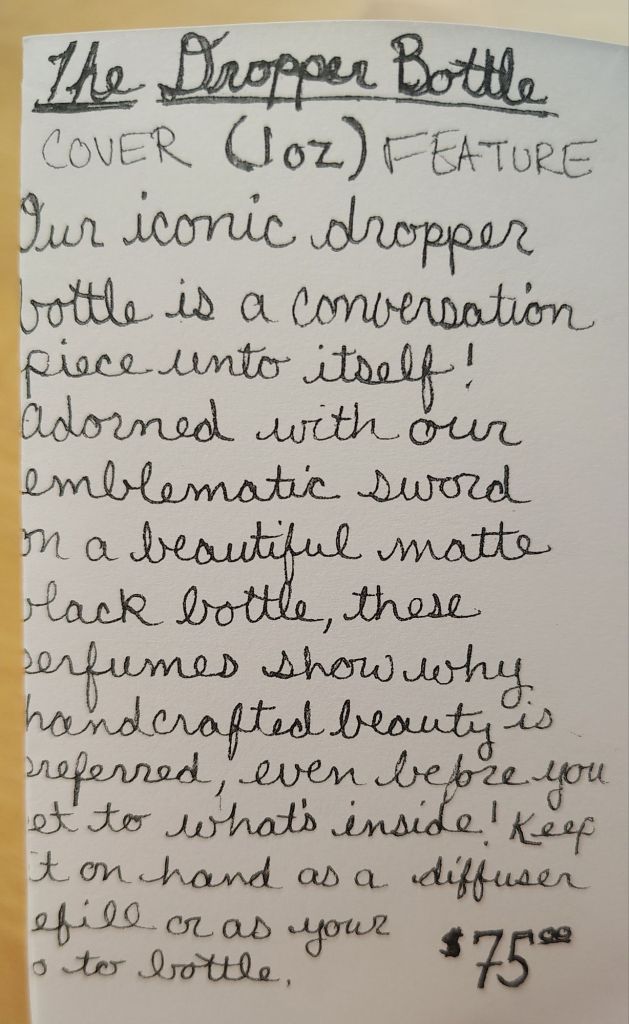 The Dropper Bottle
COVER (1oz) FEATURE
Our iconic dropper
bottle is a conversation
piece unto itself!
adorned with our
emblematic sword
on a beautiful matte
black bottle, these
perfumes show why
handcrafted beauty is
preferred, even before you
et to what's inside! Keep
it on hand as a diffuser
efill or as your
o to bottle.
$75.00